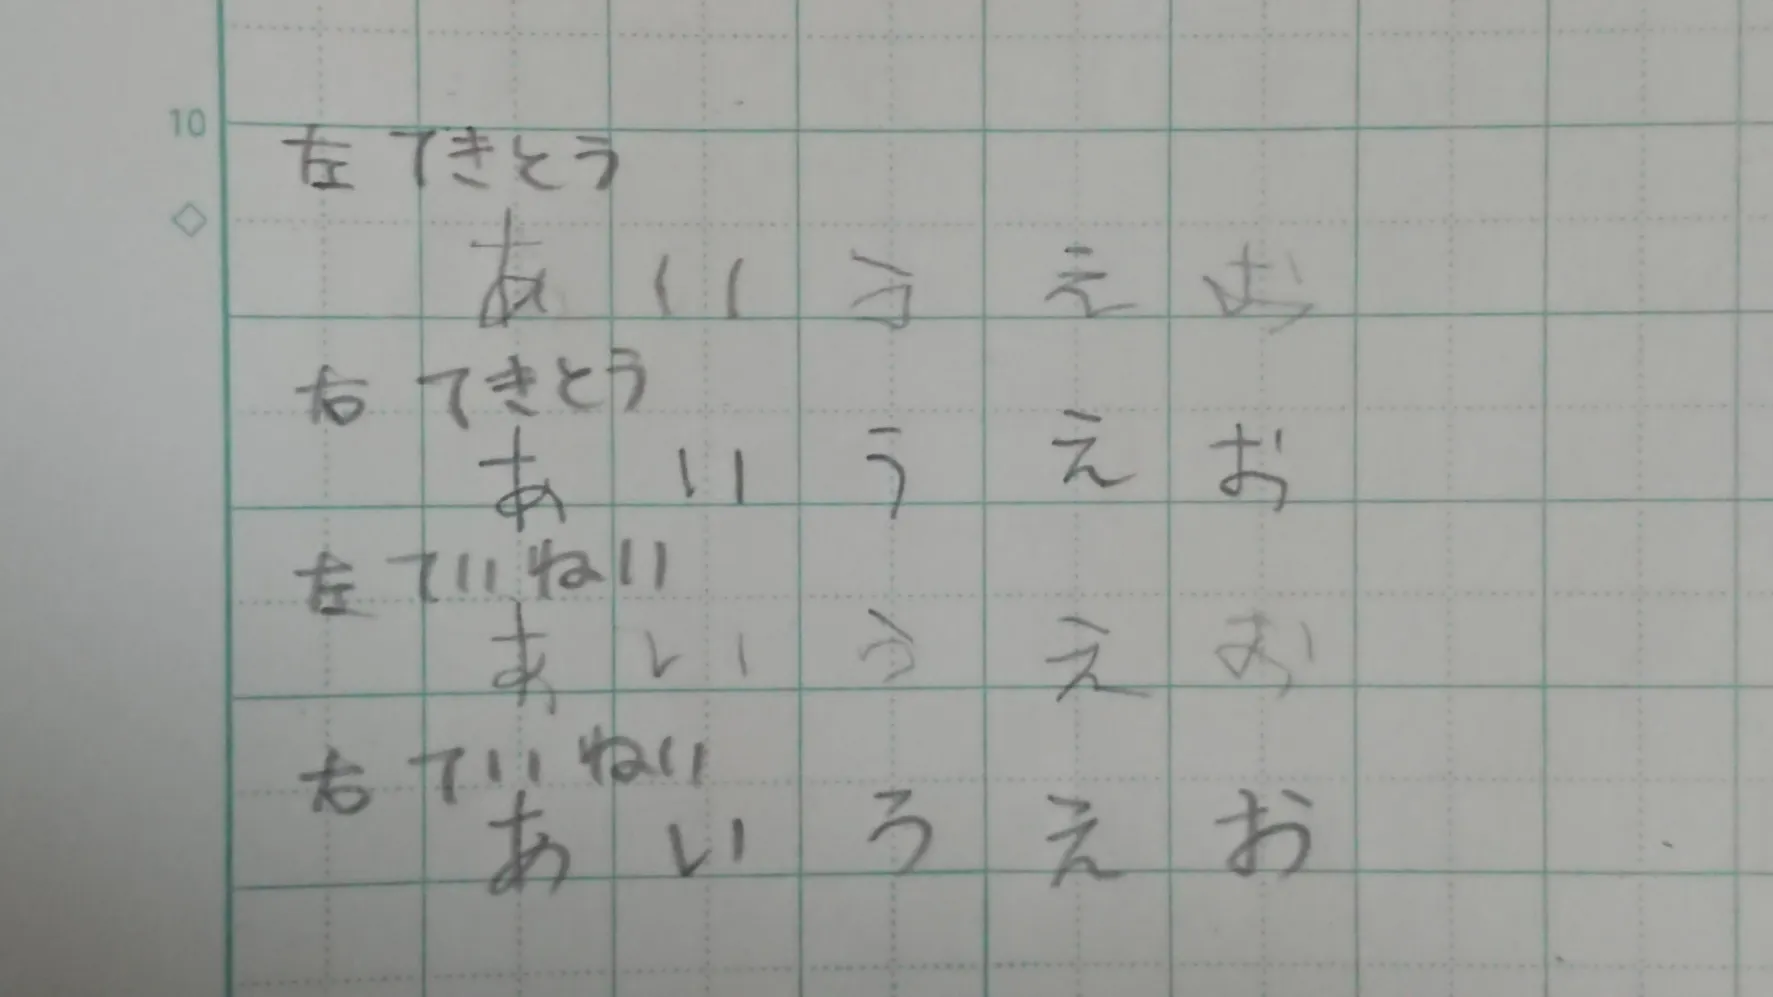 10
左 てきとう
あ い う え お
右 てきとう
あ い う え お
左 ていねい
あ い う え お
右 ていねい
あ い う え お